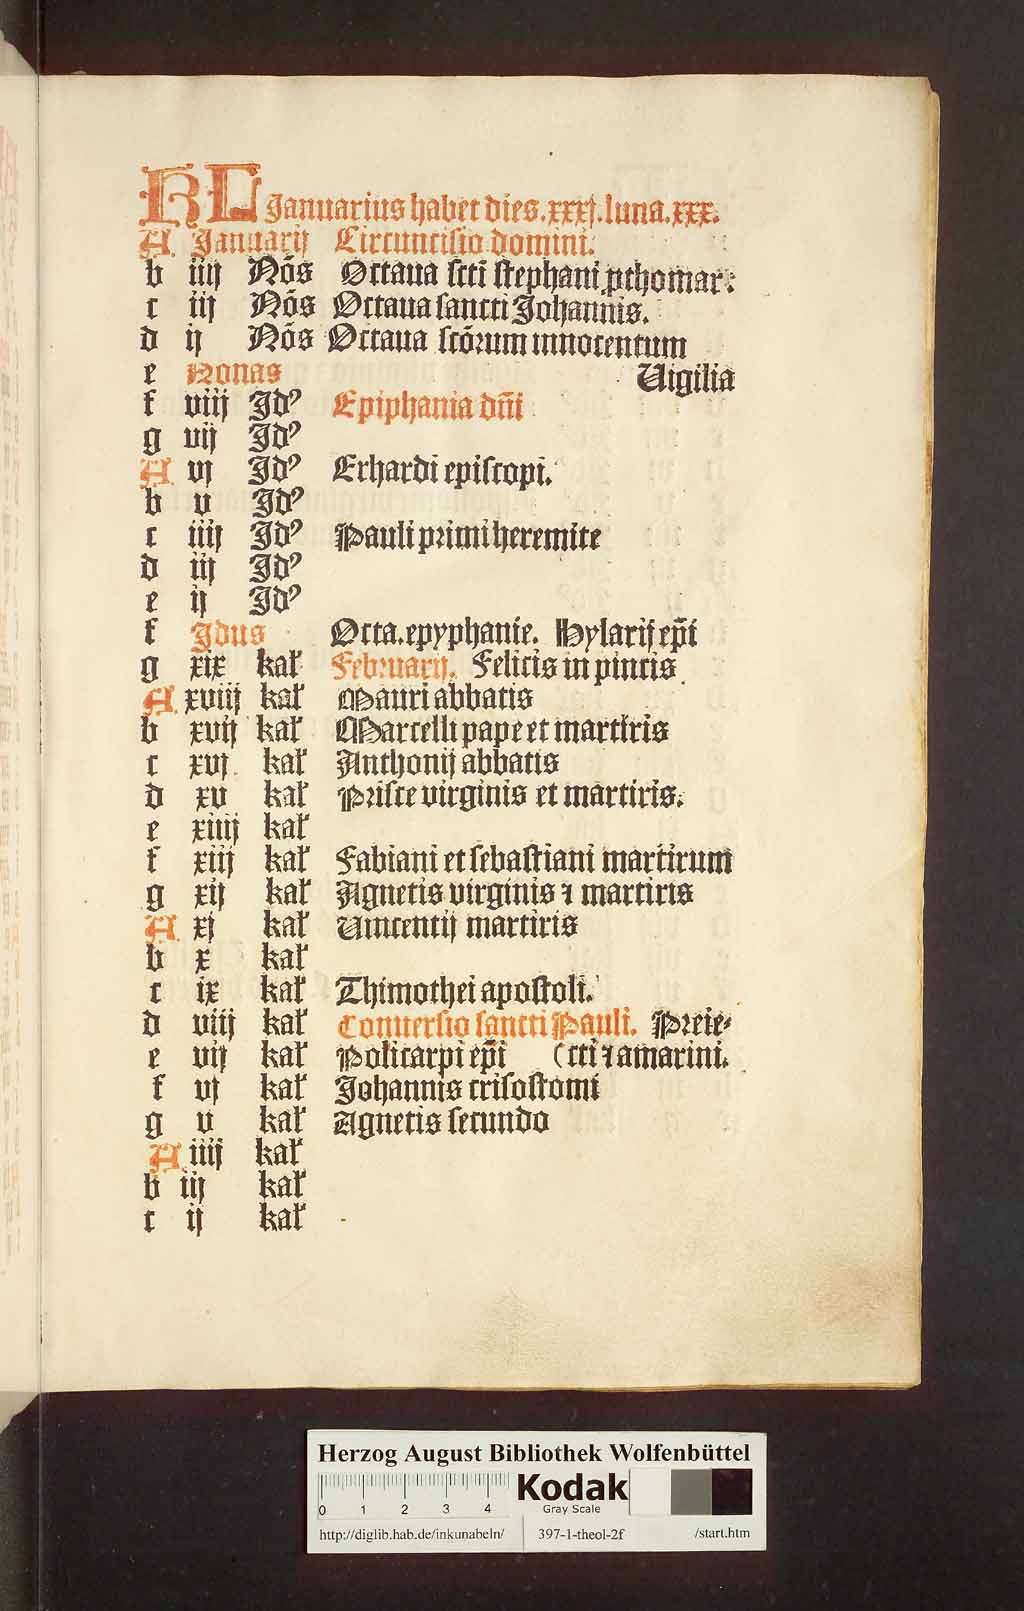 KL Januarius habet dies.xxxj.luna.xxx.
A Januarij Circuncisio domini.
b iiij Nōs Octaua scti stephani ꝓthomar:
c iij Nōs Octaua sancti Johannis.
d ij Nōs Octaua scōꝛum innocentum
e Nonas Uigilia
f viij Idꝰ Epiphania dñi
g vij Idꝰ
A vj Idꝰ Erhardi episcopi.
b v Idꝰ
c iiij Idꝰ Pauli pꝛimi heremite
d iij Idꝰ
e ij Idꝰ
f Idus Octa.epyphanie. Hylarij ep̄i
g xix kał Februarij. Felicis in pincis
A xviij kał Mauri abbatis
b xvij kał Marcelli pape et martiris
c xvj kał Anthonij abbatis
d xv kał Pꝛisce virginis et martiris.
e xiiij kał
f xiij kał Fabiani et sebastiani martirum
g xij kał Agnetis virginis ⁊ martiris
A xj kał Uincentij martiris
b x kał
c ix kał Thimothei apostoli.
d viij kał Conuersio sancti Pauli. Pꝛeie⸗
e vij kał Policarpi ep̄i (cti ⁊ amarini.
f vj kał Johannis crisostomi
g v kał Agnetis secundo
A iiij kał
b iij kał
c ij kał
Herzog August Bibliothek Wolfenbüttel
0 1 2 3 4 Kodak
Gray Scale
http://diglib.hab.de/inkunabeln/ 397-1-theol-2f /start.htm